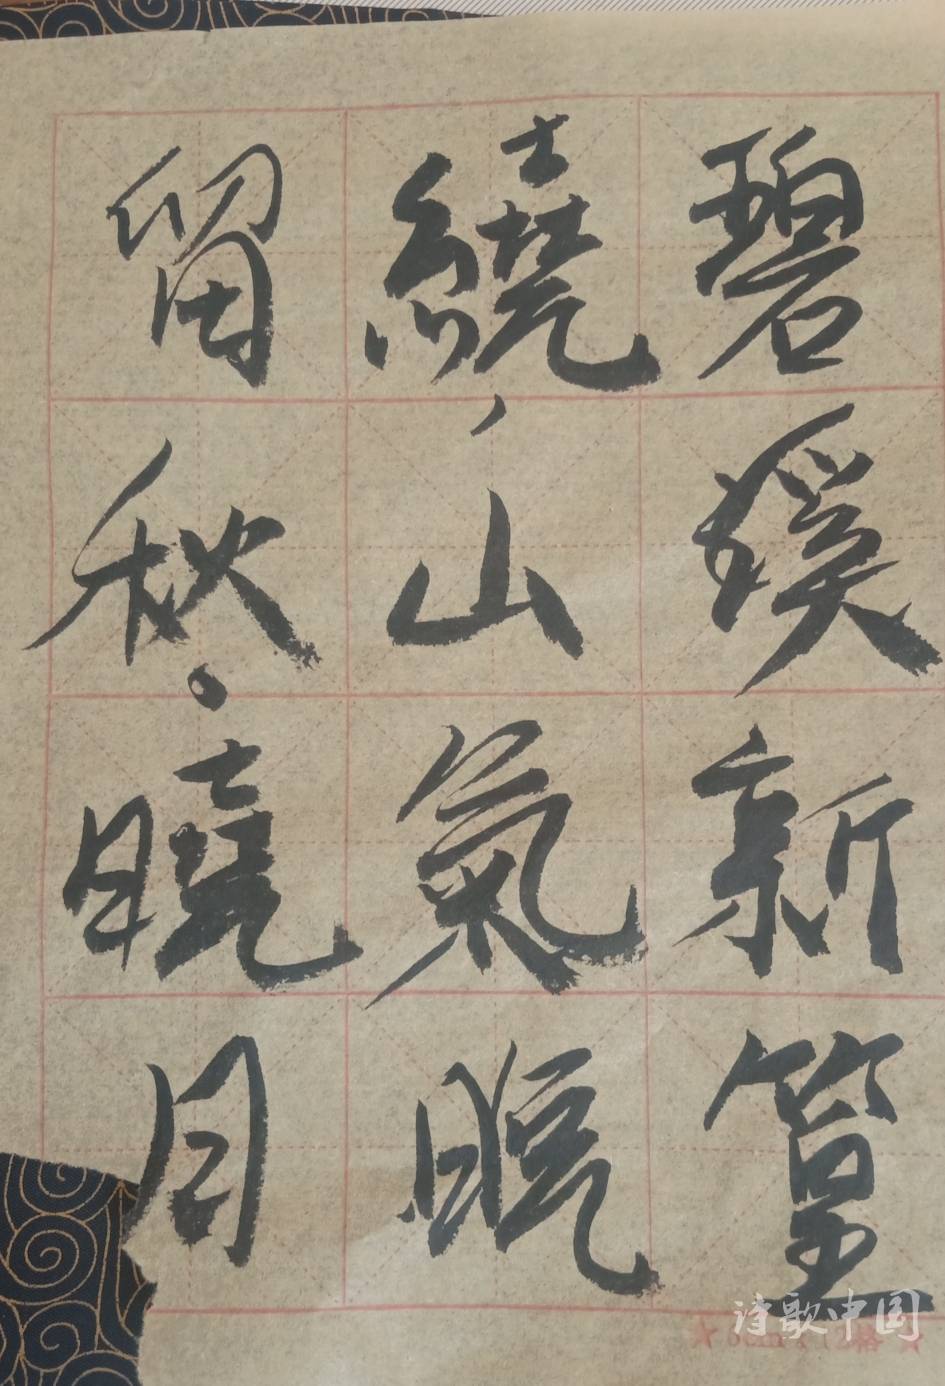 碧溪新篁
繞山氣晚
留秋曉月
诗歌中国